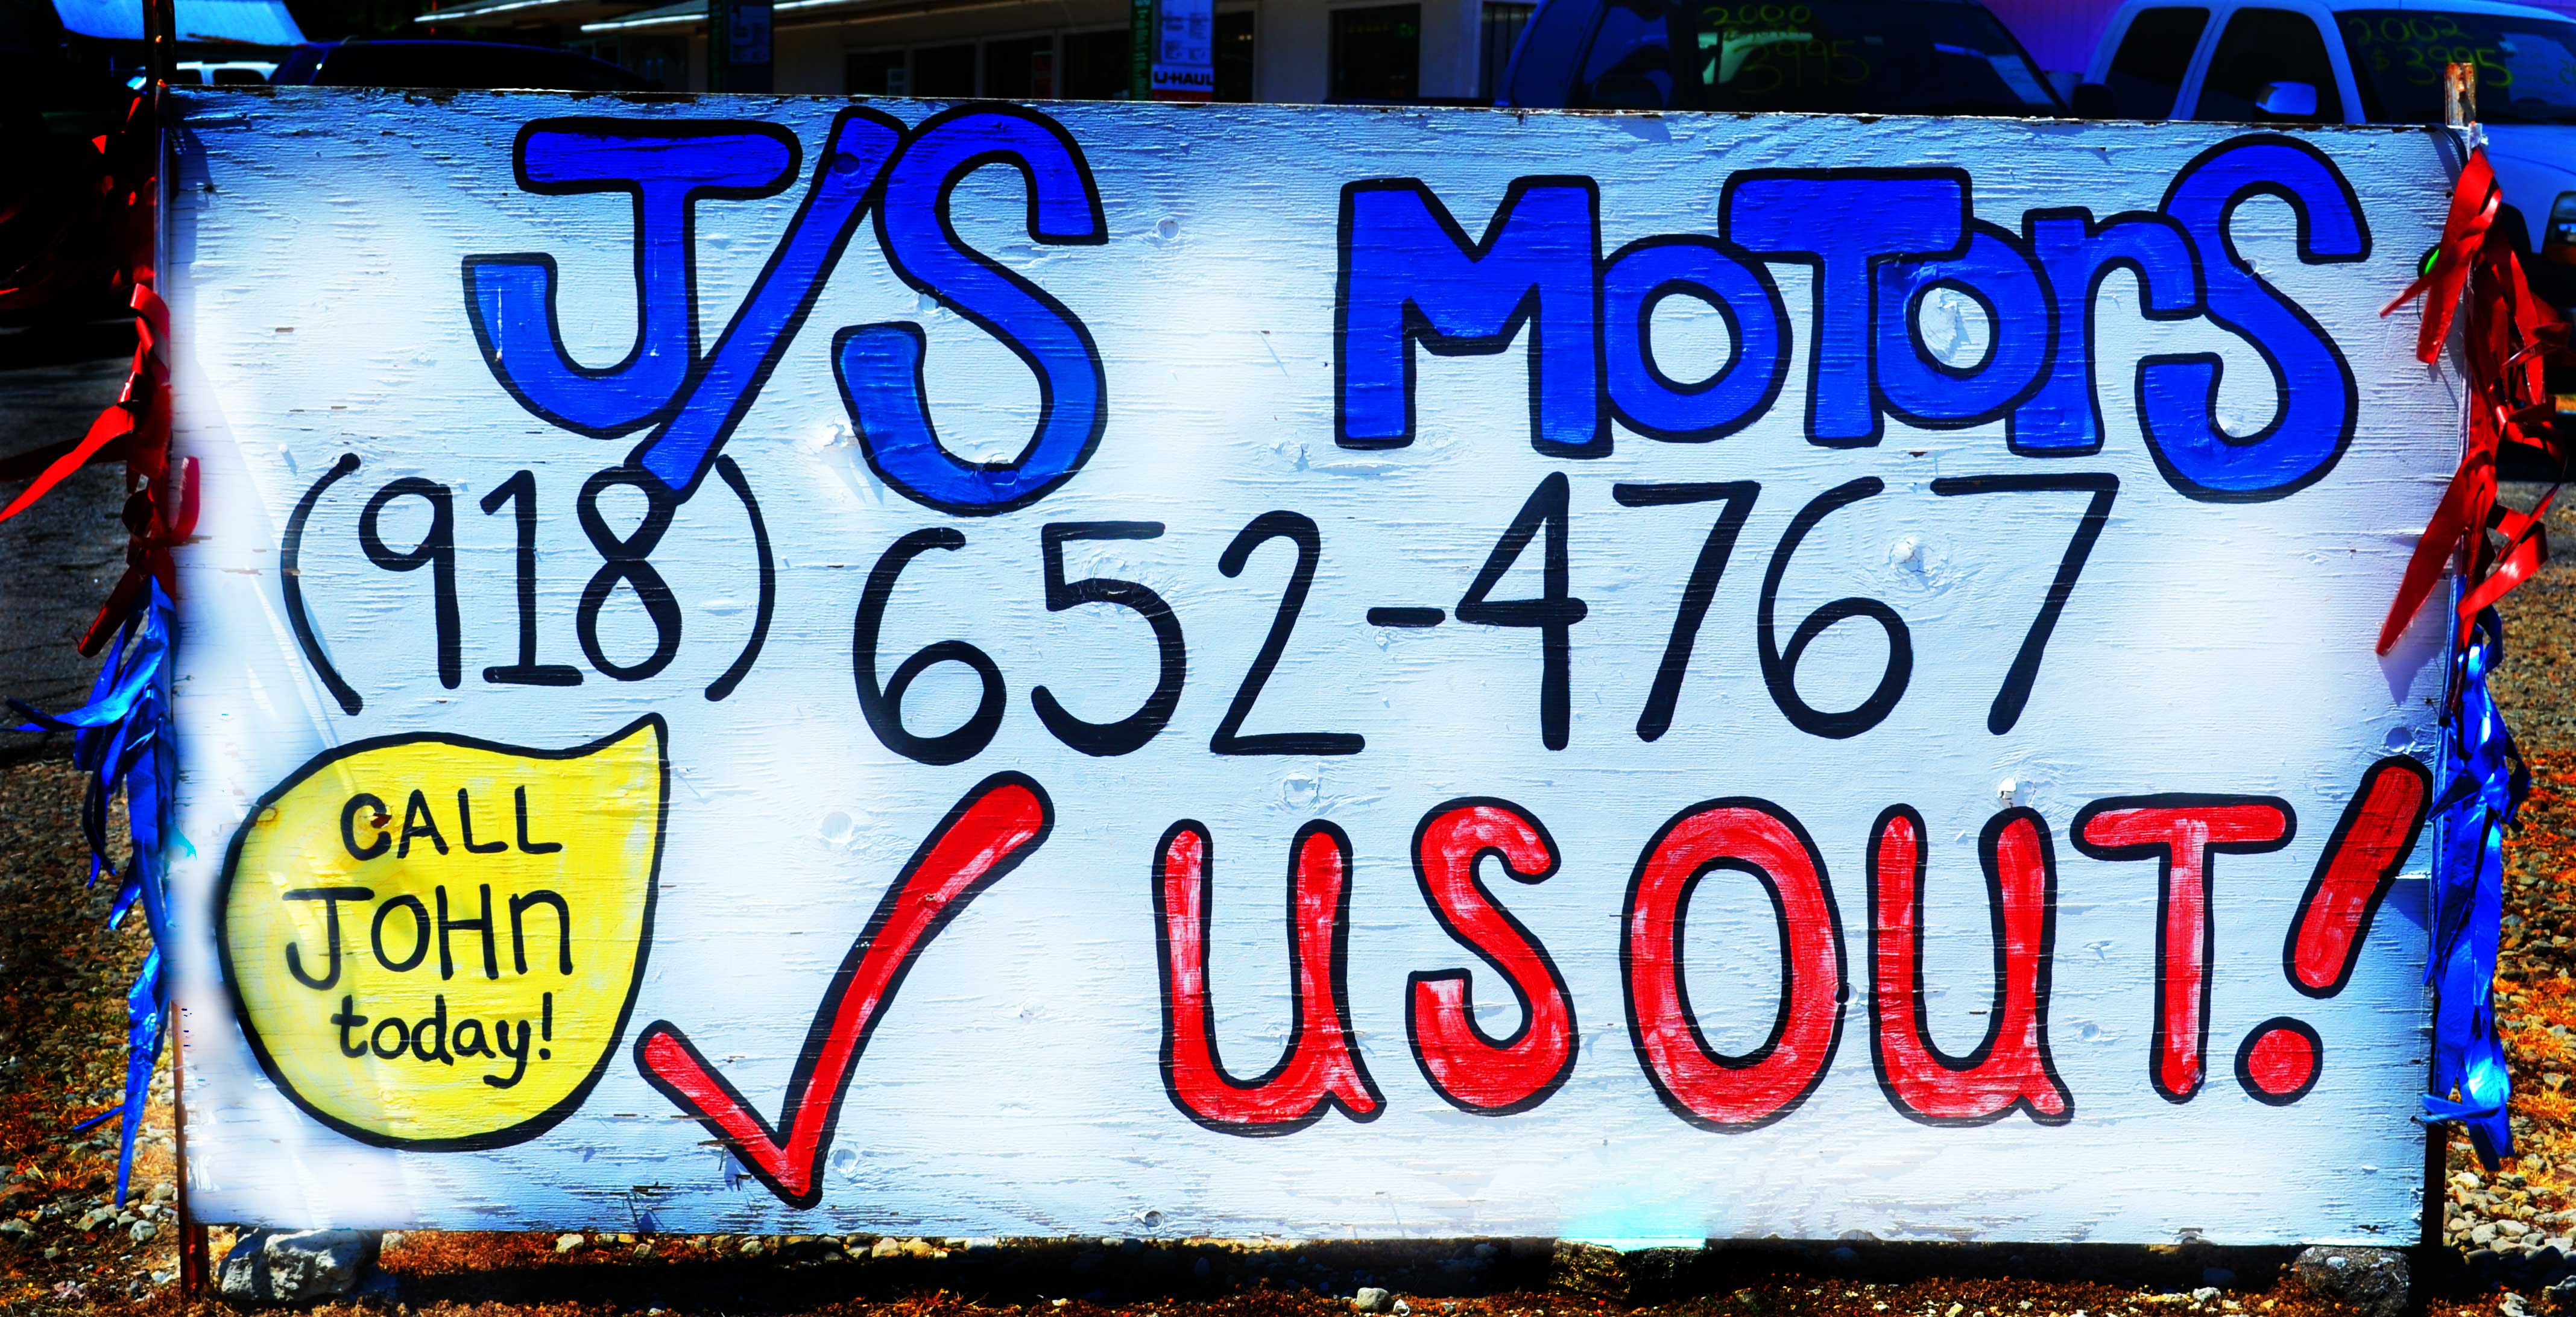 U-HAUL
2000
3995
2002
$3995
J/S MOTOrS
(918) 652-4767
CALL
JOHn
today!
✓ USOUT!